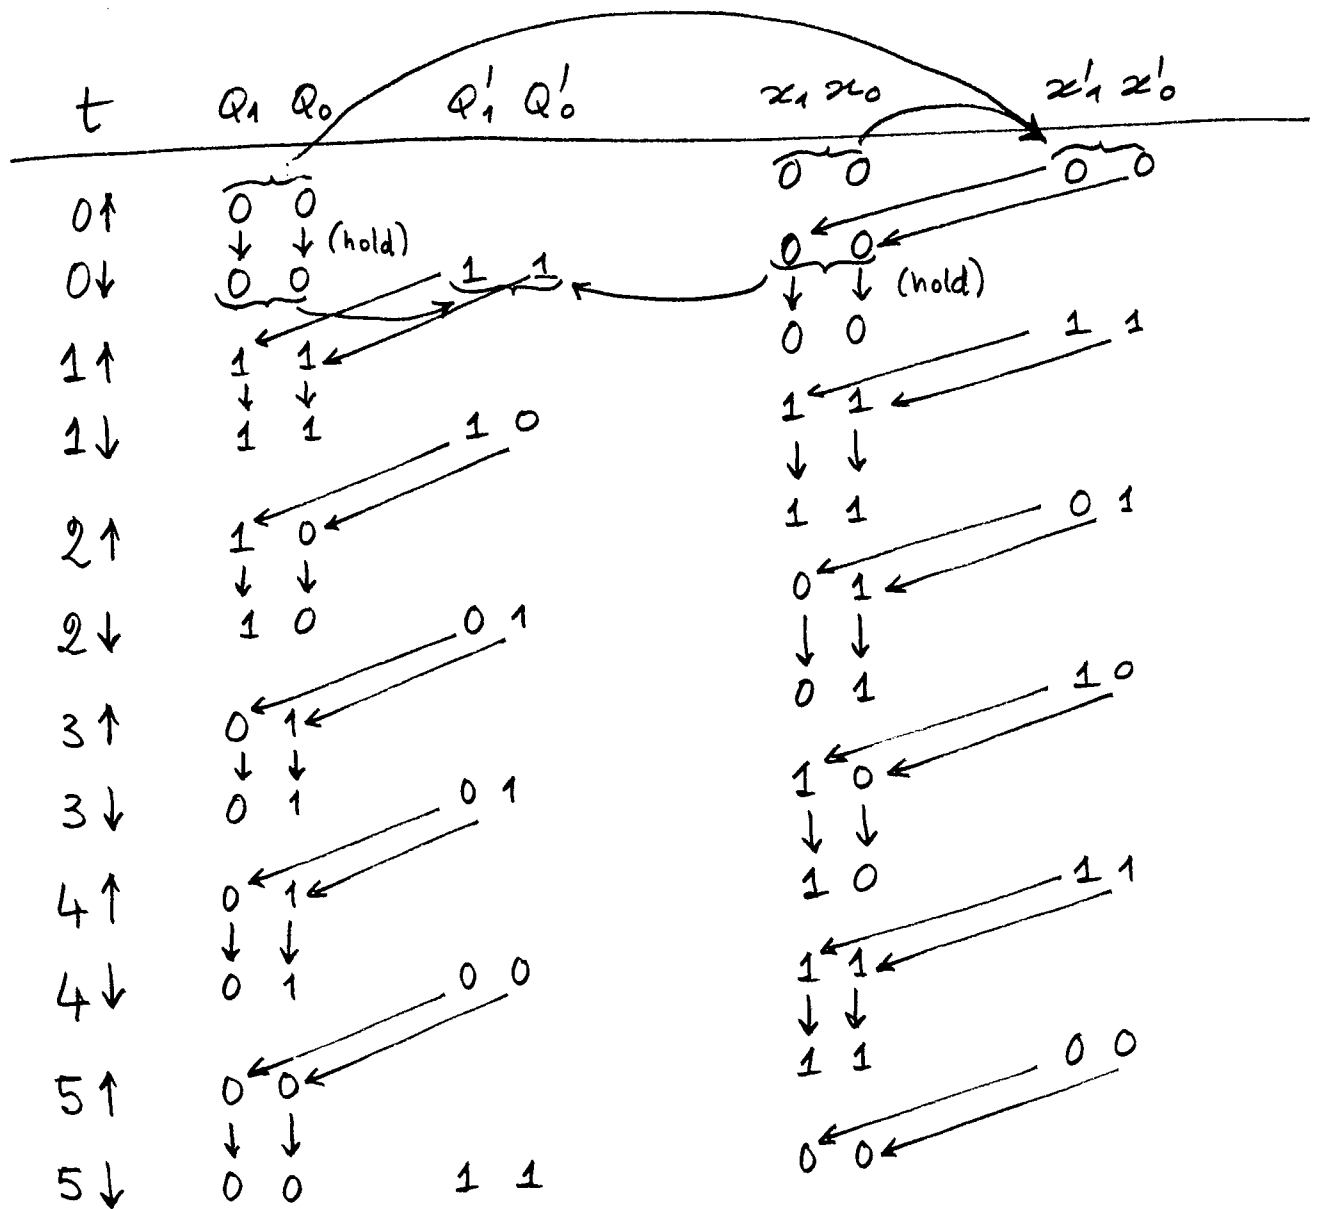 t Q1 Q0 Q'1 Q'0 x1 x0 x'1 x'0
0 0 0 0
0↑ 0 0
(hold)
0 0
0↓ 0 0 1 1 (hold)
0 0 1 1
1↑ 1 1
1 1
1↓ 1 1 1 0
1 1 0 1
2↑ 1 0
0 1
2↓ 1 0 0 1
0 1 1 0
3↑ 0 1
1 0
3↓ 0 1 0 1
1 0 1 1
4↑ 0 1
1 1
4↓ 0 1 0 0
1 1 0 0
5↑ 0 0
0 0
5↓ 0 0 1 1